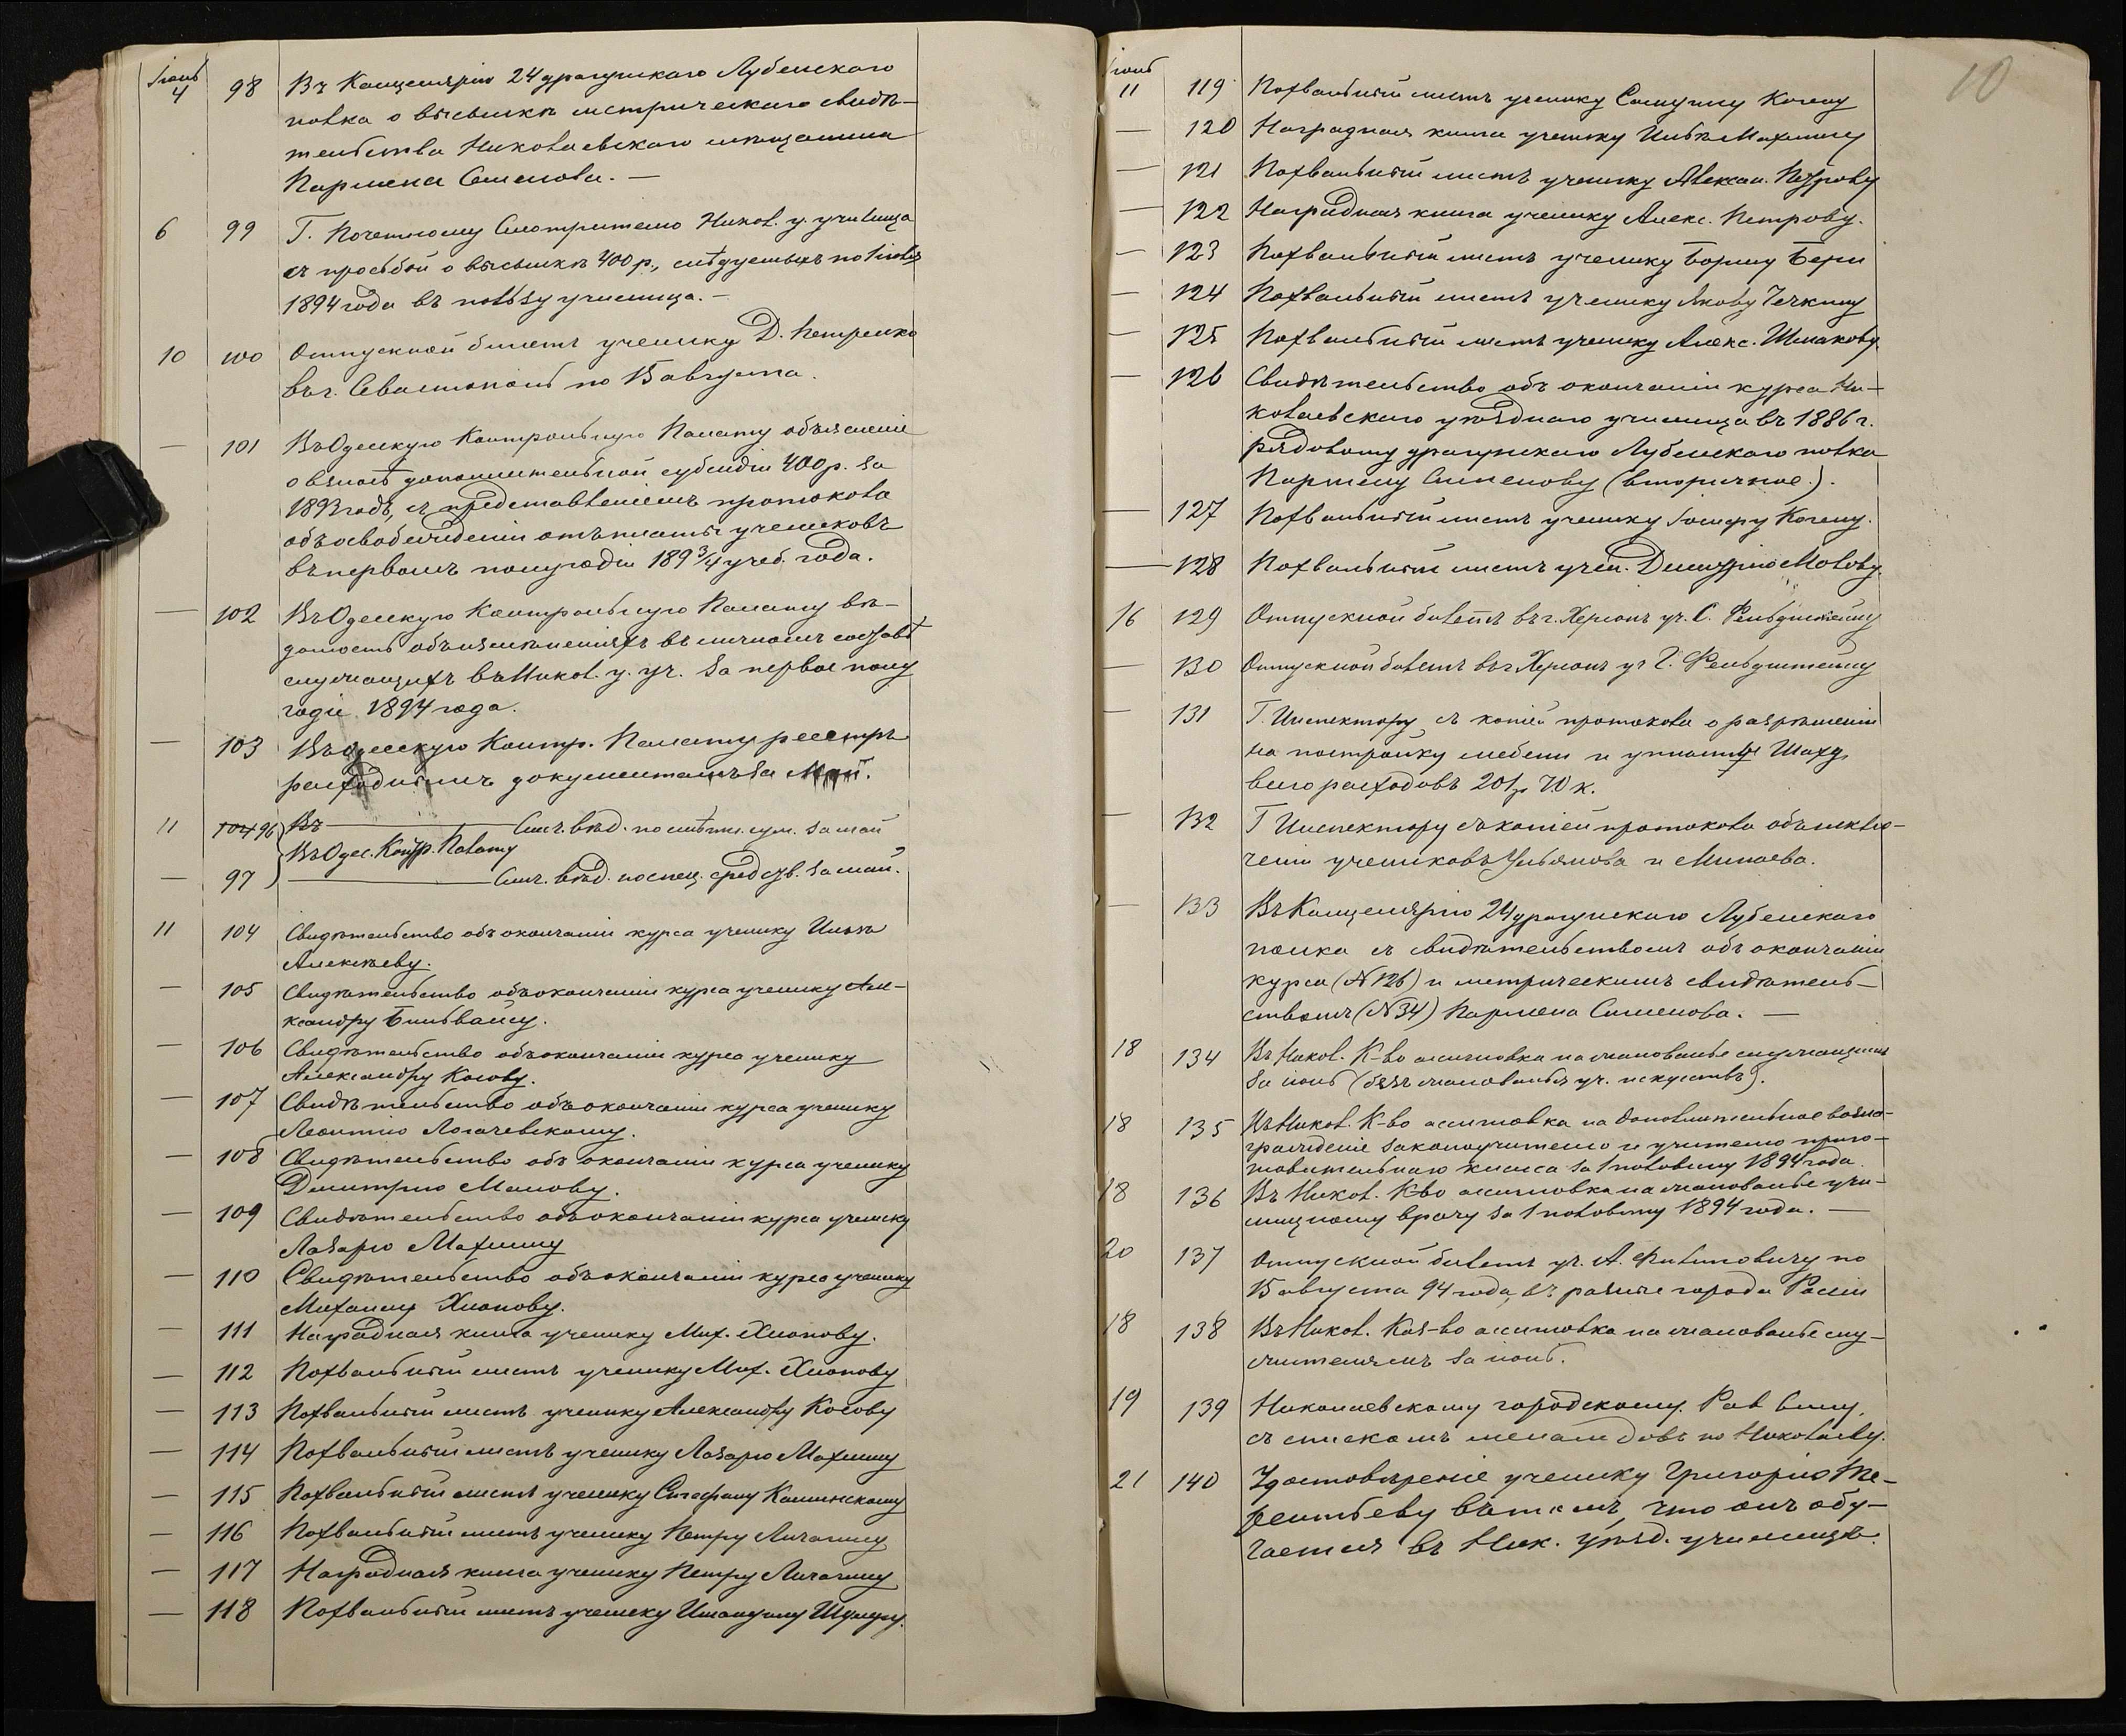 Іюнь
4 98 Въ Канцелярію 24 драгунскаго Лубенскаго
полка о высылкѣ метрическаго свидѣ-
тельства Николаевскаго мѣщанина
Пармена Семенова. —
6 99 Г. Почетному Смотрителю Никол. у. училища
съ просьбой о высылкѣ 400 р., слѣдуемыхъ по 1 июля
1894 года въ пользу училища. —
10 100 Отпускной билетъ ученику Д. Петренко
въ г. Севастополь по 15 августа.
— 101 Въ Одесскую Контрольную Палату объясненіе
о взносѣ дополнительной субсидіи 400 р. за
1893 годъ, съ представленіемъ протокола
объ освобожденіи отъ платы учениковъ
въ первомъ полугодіи 189 3/4 учеб. года.
— 102 Въ Одесскую Контрольную Палату вѣ-
домость объ измѣненіяхъ въ личномъ составѣ
служащихъ въ Никол. у. уч. за первое полу
годіе 1894 года.
— 103 Въ Одесскую Контр. Палату реестръ
расходнымъ документамъ за Май.
11 104 96 Въ — Смѣт. вѣд. по смѣтн. сум. за май
Въ Одес. Контр. Палату
— 97 — вѣд. по спец. средств. за май.
11 104 Свидѣтельство объ окончаніи курса ученику Ильѣ
Алексѣеву.
— 105 Свидѣтельство объ окончаніи курса ученику Але-
ксандру
— 106 Свидѣтельство объ окончаніи курса ученику
Александру Косову.
— 107 Свидѣтельство объ окончаніи курса ученику
Леонтію Логачевскому.
— 108 Свидѣтельство объ окончаніи курса ученику
Дмитрію Малову.
— 109 Свидѣтельство объ окончаніи курса ученику
Лазарю Махлину
— 110 Свидѣтельство объ окончаніи курса ученику
Михаилу Хлопову.
— 111 Наградная книга ученику Мих. Хлопову.
— 112 Похвальный листъ ученику Мих. Хлопову
— 113 Похвальный листъ ученику Александру Косову
— 114 Похвальный листъ ученику Лазарю Махлину
— 115 Похвальный листъ ученику Стефану Калинскому
— 116 Похвальный листъ ученику Петру Личагину
— 117 Наградная книга ученику Петру Личагину
— 118 Похвальный листъ ученику Имануилу Шулеру.
10
Іюнь
11 119 Похвальный листъ ученику Самуилу Когену
— 120 Наградная книга ученику Ильѣ Махлину
— 121 Похвальный листъ ученику Алексан. Петрову
— 122 Наградная книга ученику Алекс. Петрову.
— 123 Похвальный листъ ученику Борису Бери
— 124 Похвальный листъ ученику Якову Чечкину
— 125 Похвальный листъ ученику Алекс. Шмакову.
— 126 Свидѣтельство объ окончаніи курса Ни-
колаевскаго уѣзднаго училища въ 1886 г.
рядовому драгунскаго Лубенскаго полка
Пармену Сименову (вторичное).
— 127 Похвальный листъ ученику Іосифу Когену.
— 128 Похвальный листъ учен. Димитрію Молову.
16 129 Отпускной билетъ въ г. Херсонъ уч. С. Фельдштейну
— 130 Отпускной билетъ въ г Херсонъ уч Г. Фельдштейну
— 131 Г. Инспектору съ копіей протокола о разрѣшеніи
на постройку мебели и уплаты
всего расходовъ 201 р 70 к.
— 132 Г Инспектору съ копіей протокола объ исклю-
ченіи учениковъ Ульянова и Минаева.
— 133 Въ Канцелярію 24 драгунскаго Лубенскаго
полка съ свидѣтельствомъ объ окончаніи
курса (№ 126) и метрическимъ свидѣтель-
ствомъ (№ 34) Пармена Сименова. —
18 134 Въ Никол. К-во ассигновка на жалованье служащимъ
за іюнь (безъ жалованья уч. искусствъ).
18 135 Въ Никол. К-во ассигновка на дополнительное возна-
гражденіе законоучителю и учителю приго-
товительнаго класса за 1 половину 1894 года.
18 136 Въ Никол. К-во ассигновка на жалованье учи-
лищному врачу за 1 половину 1894 года. —
20 137 Отпускной билетъ уч. А. Филиповичу по
15 августа 94 года, въ разные города Россіи
18 138 Въ Никол. Каз-во ассигновка на жалованье слу-
жителямъ за іюнь.
19 139 Николаевскому городскому. Рав вину,
съ спискомъ по Николаеву.
21 140 Удостовѣреніе ученику Григорію Те-
рентьеву въ томъ, что онъ обу-
чается въ Ник. уѣзд. училищѣ.